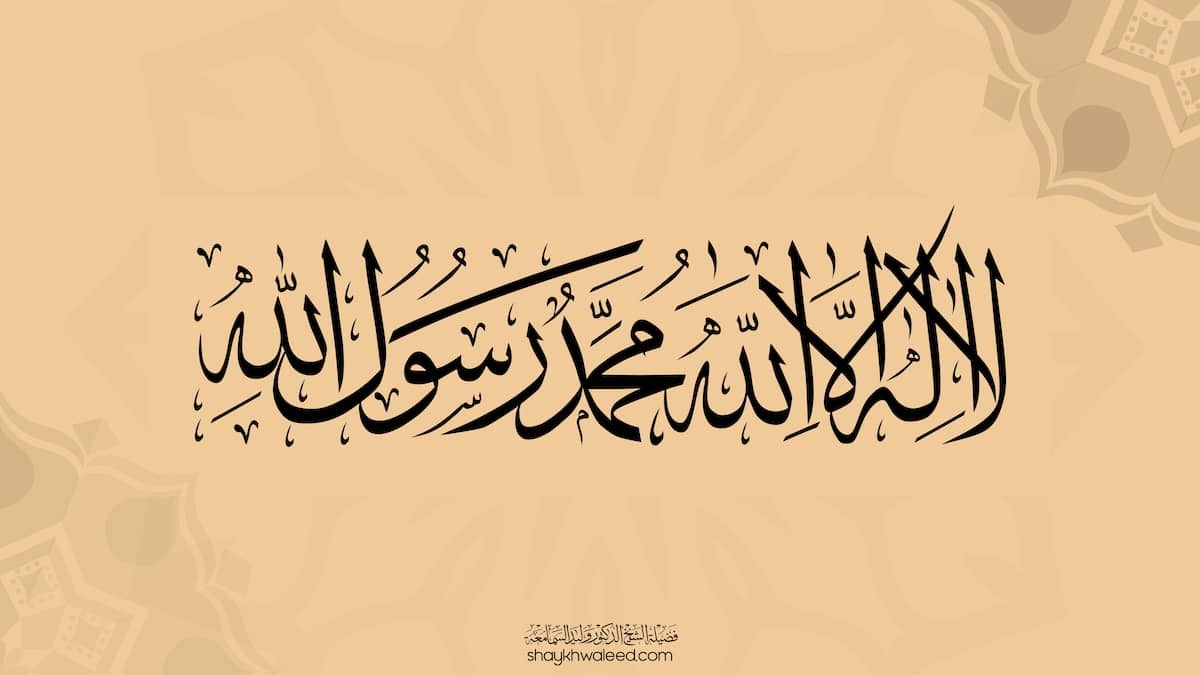 لَا إِلٰهَ إِلَّا اللّٰهُ مُحَمَّدٌ رَسُولُ اللّٰهِ
فضيلة الشيخ الدكتور وليد السمامعة
shaykhwaleed.com